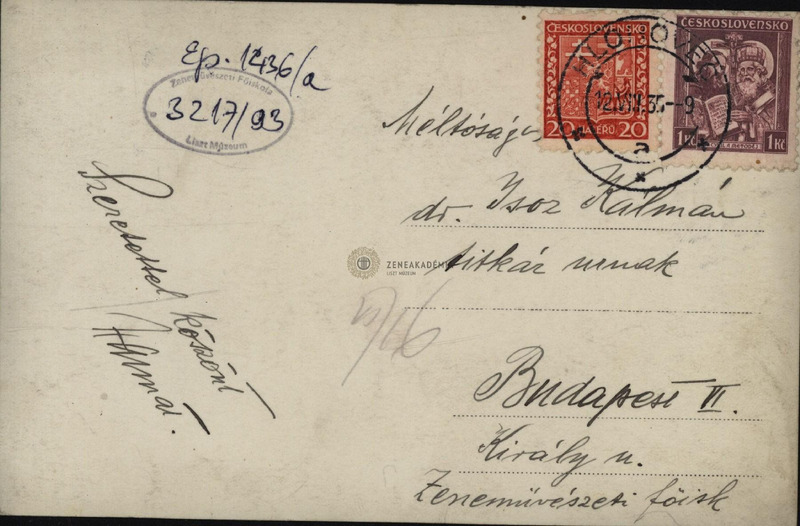 Ep. 1436/a
Zeneművészeti Főiskola
3217/93
Liszt Múzeum
ČESKOSLOVENSKO
20 HALÉŘŮ 20
ČESKOSLOVENSKO
1 Kč 1 Kč
HLOHOVEC
a
Méltóságos
dr. Isoz Kálmán
titkár urnak
Budapest VI.
Király u.
Zeneművészeti főisk
Szeretettel
köszönt
ZENEAKADÉMIA
LISZT MÚZEUM